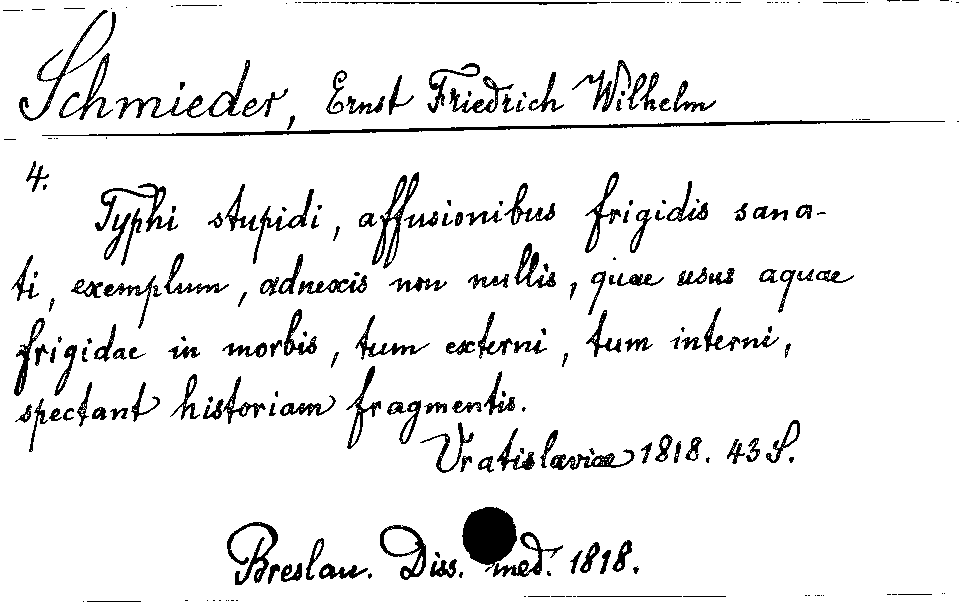 Schmieder, Ernst Friedrich Wilhelm
4.
Typhi stupidi, affusionibus frigidis sana-
ti, exemplum, adnexis non nullis, quae usus aquae
frigidae in morbis, tum externi, tum interni,
spectant historiam fragmentis.
Vratislaviae 1818. 43 S.
Breslau. Diss. med. 1818.